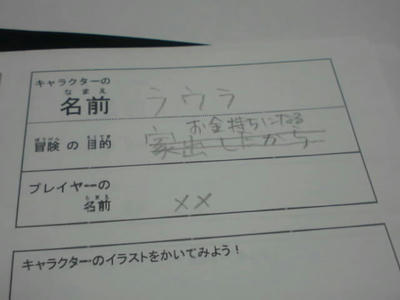 キャラクターの
なまえ
名前
ラウラ
お金持ちになる
ぼうけん もくてき
冒険の目的
家出したから
プレイヤーの
なまえ
名前
××
キャラクターのイラストをかいてみよう！